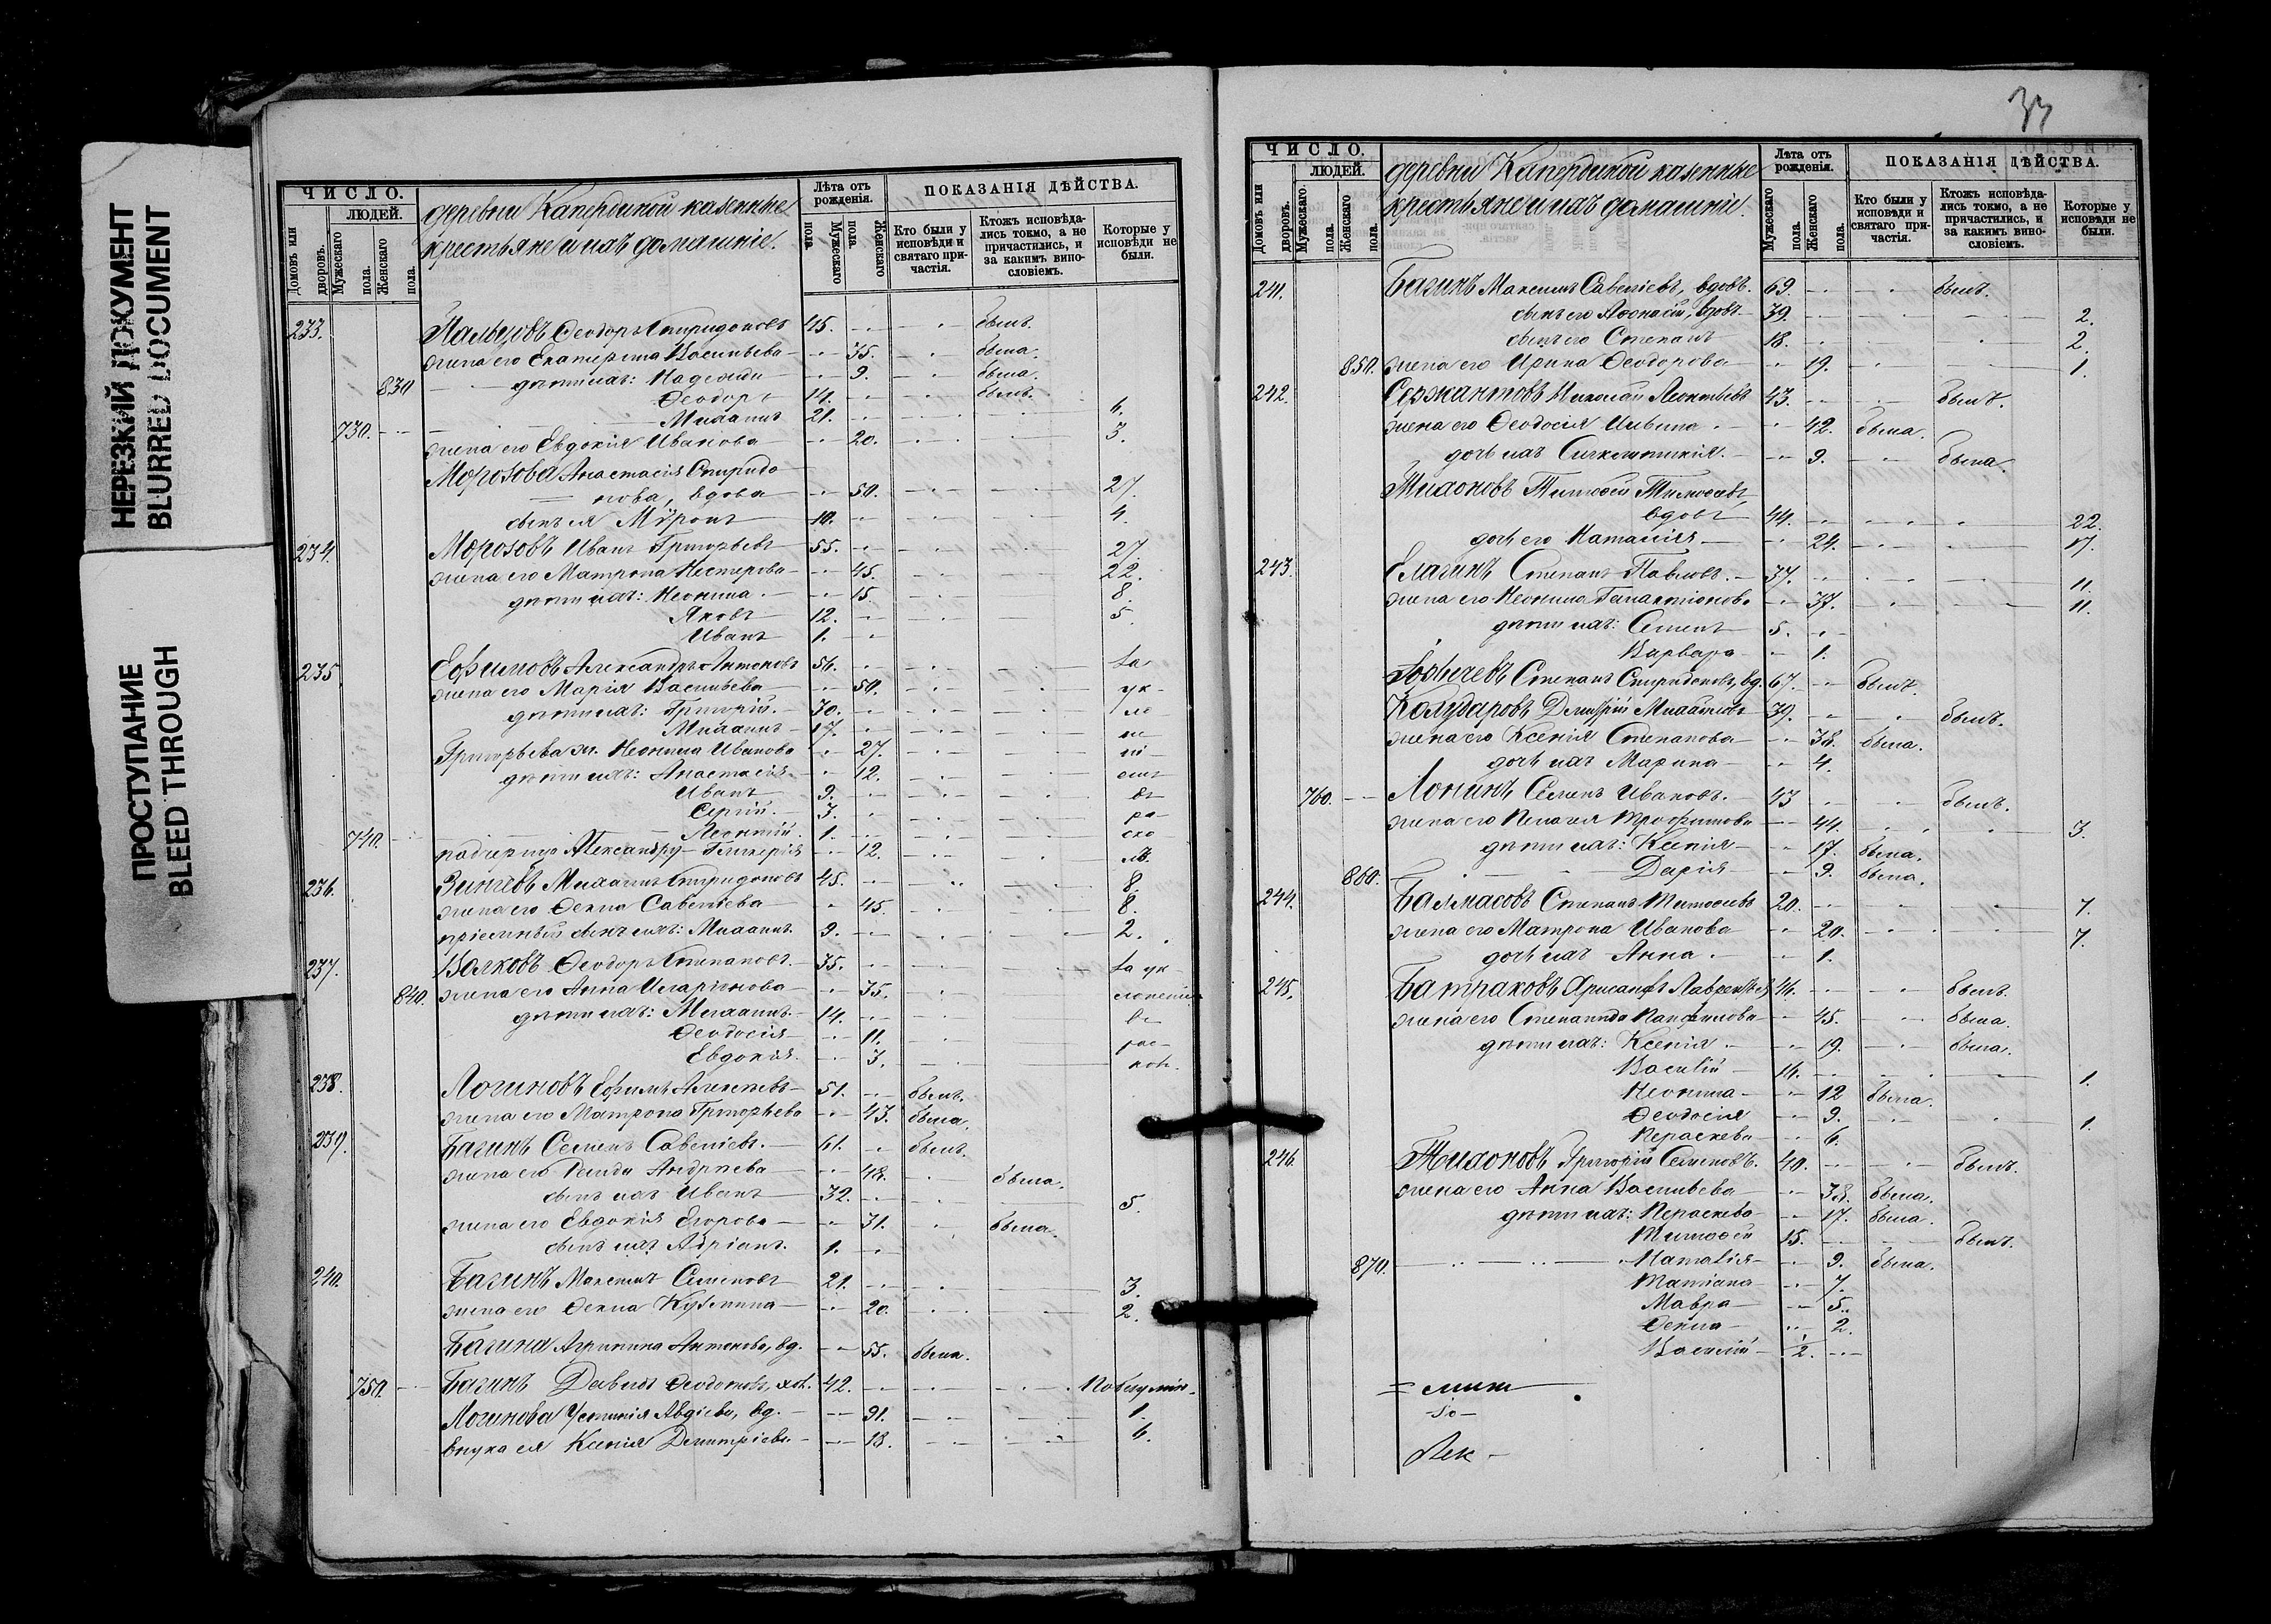 НЕРЕЗКИЙ ДОКУМЕНТ
BLURRED DOCUMENT
ПРОСТУПАНИЕ
BLEED THROUGH
ЧИСЛО.
Домовъ или дворовъ.
ЛЮДЕЙ.
Мужескаго пола.
Женскаго пола.
деревни казенные
крестьяне и ихъ домашніе.
Лѣта отъ рожденія.
Мужескаго пола.
Женскаго пола.
ПОКАЗАНІЯ ДѢЙСТВА.
Кто были у исповѣди и святаго причастія.
Ктожъ исповѣдались токмо, а не причастились, и за какимъ винословіемъ.
Которые у исповѣди не были.
233. Пальцовъ Ѳеодоръ Спиридоновъ 45. былъ.
жена его Екатерина Васильева 35. была.
830 дѣти ихъ: Надежда 9. была.
Ѳеодоръ 14. былъ.
730. Михаилъ 21. 4.
жена его Евдокія Иванова 20. 3.
Морозова Анастасія Спиридо
нова, вдова 50. 27.
сынъ ея Мѵронъ 10. 4.
234. Морозовъ Иванъ Григорьевъ 55. 27.
жена его Матрона Нестерова 45. 22.
дѣти ихъ: Неонила 15. 8.
Яковъ 12. 5.
Иванъ 1.
235. Ефимовъ Александръ Антоновъ 56. За
жена его Марія Васильева 50. ук-
дѣти ихъ: Григорій 30. ло
Михаилъ 17. не
Григорьева ж. Неонила Иванова 27. ні-
дѣти ихъ: Анастасія 12. емъ
Иванъ 9. въ
Сергій 3. ра-
740. Леонтій 1. ско
падчерица Александру Гликерія 12. лъ.
236. Зинчевъ Михаилъ Спиридоновъ 45. 8.
жена его Ѳекла Савельева 45. 8.
пріемный сынъ ихъ: Михаилъ 9. 2.
237. Волковъ Ѳеодоръ Степановъ 35. За ук-
840. жена его Анна Иларіонова 35. лоненіемъ
дѣти ихъ: Михаилъ 14. въ
Ѳеодосія 11. рас-
Евдокія 3. колъ.
238. Логиновъ Ефимъ Алексѣевъ 51. былъ.
жена его Матрона Григорьева 43. была.
239. Багинъ Семенъ Савельевъ 61. былъ.
жена его Андреева 48. была.
сынъ ихъ Иванъ 32. 5.
жена его Евдокія Егорова 31. была.
сынъ ихъ Адріанъ 1.
240. Багинъ Максимъ Семеновъ 21. 3.
жена его Ѳекла Кузьмина 20. 2.
Багина Агрипина Антонова, вд. 55. была.
750. Багинъ Давидъ 42. По безумію.
Логинова Устинія Авдіева, вд. 91. 1.
внука ея Ксенія Димитріева 18. 4.
33
ЧИСЛО.
Домовъ или дворовъ.
ЛЮДЕЙ.
Мужескаго пола.
Женскаго пола.
деревни казенные
крестьяне и ихъ домашніе.
Лѣта отъ рожденія.
Мужескаго пола.
Женскаго пола.
ПОКАЗАНІЯ ДѢЙСТВА.
Кто были у исповѣди и святаго причастія.
Ктожъ исповѣдались токмо, а не причастились, и за какимъ винословіемъ.
Которые у исповѣди не были.
241. Багинъ Максимъ Савельевъ, вдовъ. 69. былъ.
сынъ его Аѳонасій, вдовъ 39. 2.
сынъ его Степанъ 18. 2.
850. жена его Ирина Ѳеодорова 19. 1.
242. Сержантовъ Николай Леонтьевъ 43. былъ.
жена его Ѳеодосія 42. была.
дочь ихъ Синклитикія 9. была.
Тихоновъ Тимоѳей Тимоѳеевъ,
вдовъ 44. 22.
дочь его Наталія 24. 17.
243. Елагинъ Степанъ Павловъ 37. 11.
жена его Неонила Галактіонова 37. 11.
дѣти ихъ: Семенъ 5.
Варвара 1.
Степанъ Спиридоновъ, вд. 67. былъ.
Колударовъ Димитрій Михайловъ 39. былъ.
жена его Ксенія Степанова 38. была.
дочь ихъ Марина 4.
760. Лонинъ Семенъ Ивановъ 43 былъ.
жена его Пелагея Трофимова 44. 3.
дѣти ихъ: Ксенія 17. была.
860. Дарія 9. была.
244. Балмасовъ Степанъ Тимоѳеевъ 20. 7.
жена его Матрона Иванова 20. 7.
дочь ихъ Анна 1.
245. Батраковъ Хрисанфъ Лаврентьевъ 46. былъ.
жена его Степанида Панфилова 45. была.
дѣти ихъ: Ксенія 19. была.
Василій 16. 1.
Неонила 12 была.
Ѳеодосія 9. 1.
Параскева 6.
246. Тихоновъ Григорій Семеновъ 40. былъ.
жена его Анна Васильева 38. была.
дѣти ихъ: Параскева 17. была.
Тимоѳей 15. былъ.
870. Наталія 9. была.
Татіана 7.
Мавра 5.
Ѳекла 2.
Василій 1/2.